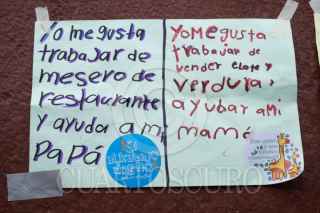 Yo me gusta
trabajar de
mesero de
restaurante
y ayuda a mi
PaPá
Yo me gusta
trabajar de
vender elote y
verdura y
ayubar a mi
mamé
CUARTOSCURO